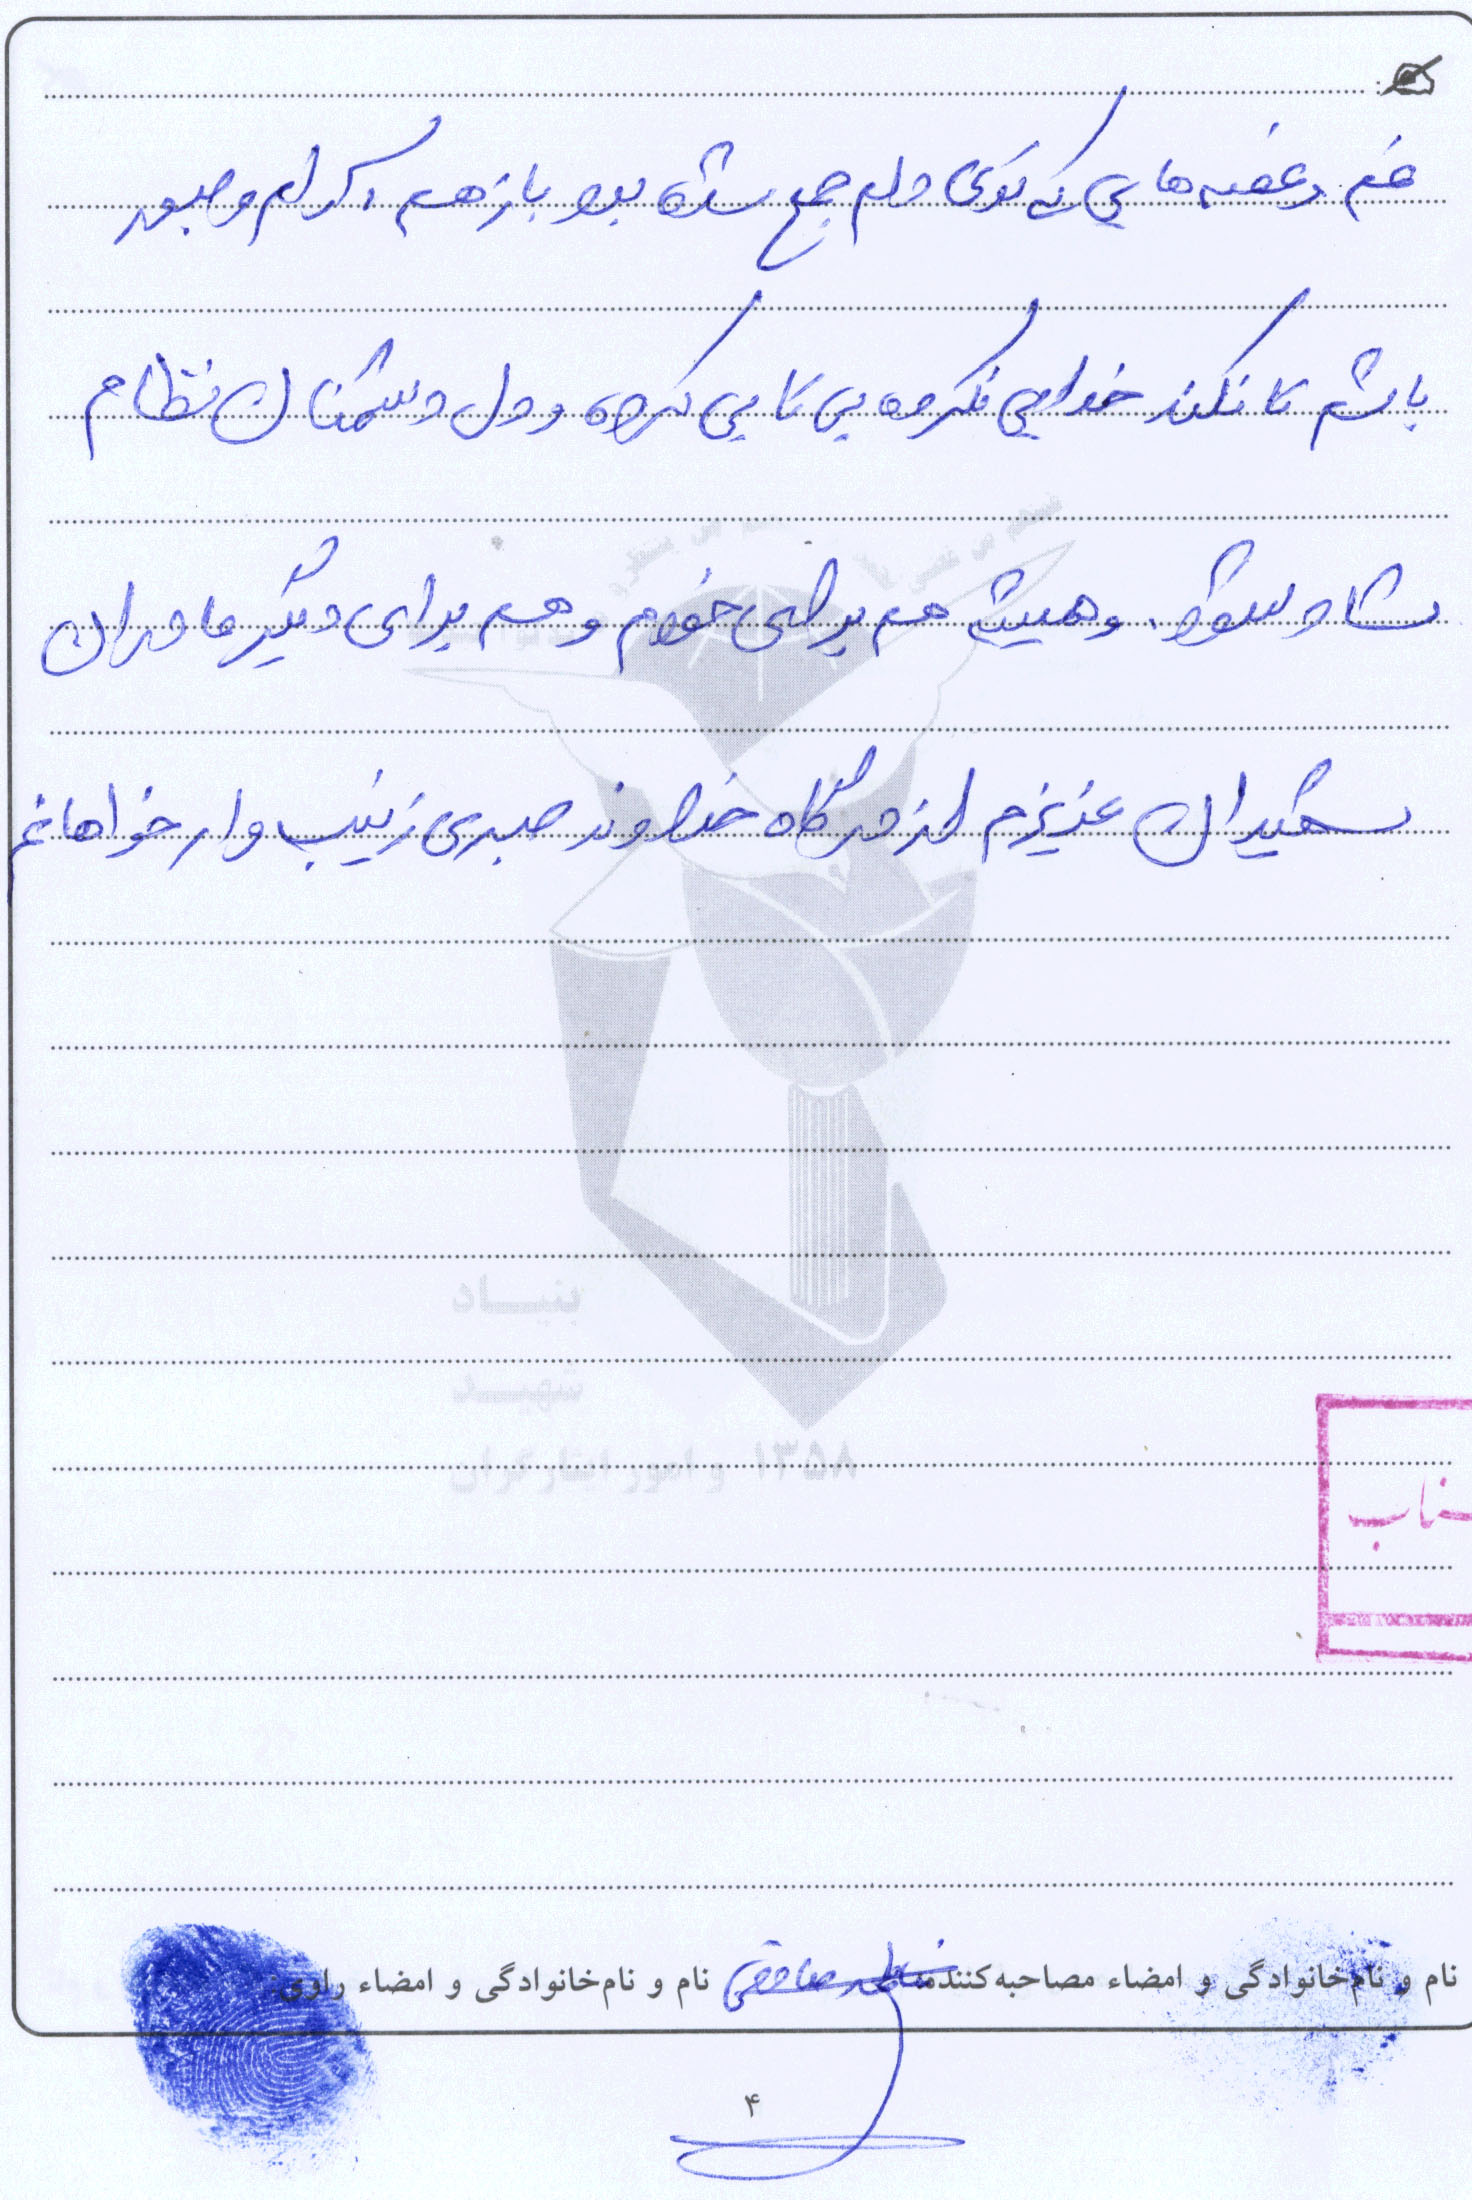 غم و غصه هایی که توی دلم جمع شده بود باز هم آرام و صبور
باشم تا نکند خدایی نکرده بی تابی کرده و دل دشمنان نظام
شاد شود. و همیشه هم برای خودم و هم برای دیگر مادران
شهیدان عزیزم از درگاه خداوند صبری زینب وار خواهانم
بنیاد
شهید
و امور ایثارگران ۱۳۵۸
نام و نام‌خانوادگی و امضاء مصاحبه‌کننده: صادقی نام و نام‌خانوادگی و امضاء راوی:
۴